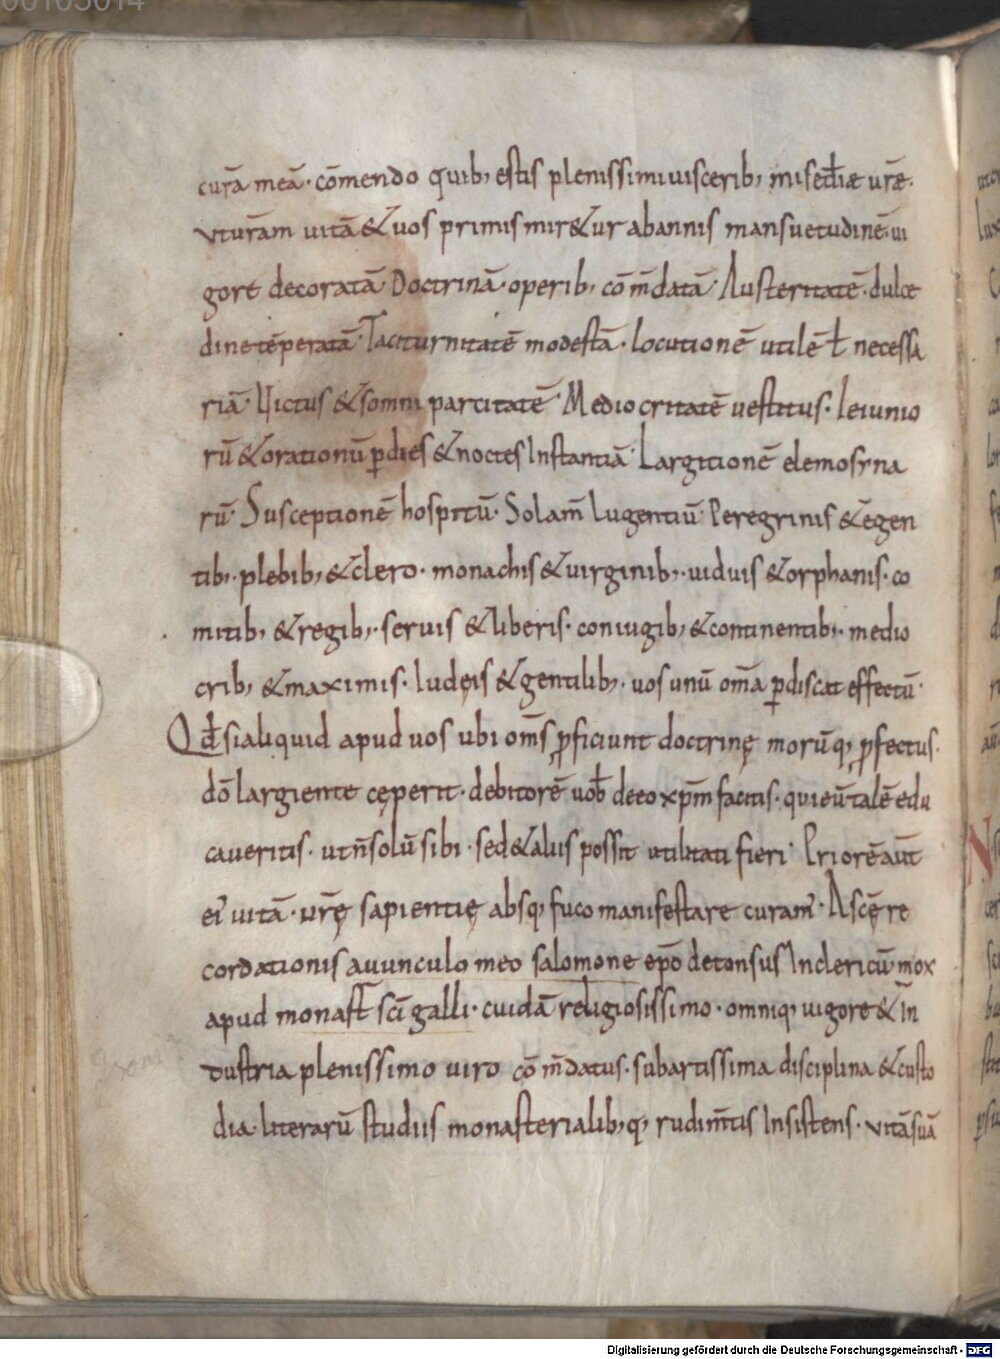 00105014
curā meā· cōmendo quib; estis plenissimi uiscerib; misericđiæ urǣ·
vturām uitā & uos primis mir&ur ab annis mansuetudinē· ui
gore decoratā· Doctrinā· operib; cōm̄datā· Austeritatē· dulce
dine tēperatā· Taciturnitatē modestā· locutionē utilē ł necessa
riā· Uictus & somni parcitatē· Mediocritatē uestitus· Ieiunio
rū & orationū ꝑ dies & noctes Instantiā· Largitionē elemosyna
rū· Susceptionē hospitū· Solam̄ lugentiū· Peregrinis & egen
tib;· plebib; & clero· monachis & uirginib;· uiduis & orphanis· co
mitib; & regib;· seruis & liberis· coniugib; & continentib;· medio
crib; & maximis· Iudęis & gentilib;· uos unū om̄a ꝑdiscat effectū·
Qđ si aliquid apud uos ubi om̄s ꝓficiunt doctrinę morūq; ꝓfectus·
dō largiente cęperit· debitorē uob̄ deeo xp̄m facitis· qui eū talē edu
caueritis· ut n̄ solū sibi· sed & aliis possit utilitati fieri· Priorē aut̄
ei' uitā· urę̄ sapientię absq; fuco manifestare curam̄· A scē re
cordationis auunculo meo salomone ep̄o detonsus In clericū mox
apud monast̄ sc̄i galli· cuidā religiosissimo· omniq; uigore & In
dustria plenissimo uiro cōm̄datus· sub artissima disciplina & custo
dia· literarū studiis monasterialib;q; rudim̄tis Insistens· vitā suā
Digitalisierung gefördert durch die Deutsche Forschungsgemeinschaft - DFG